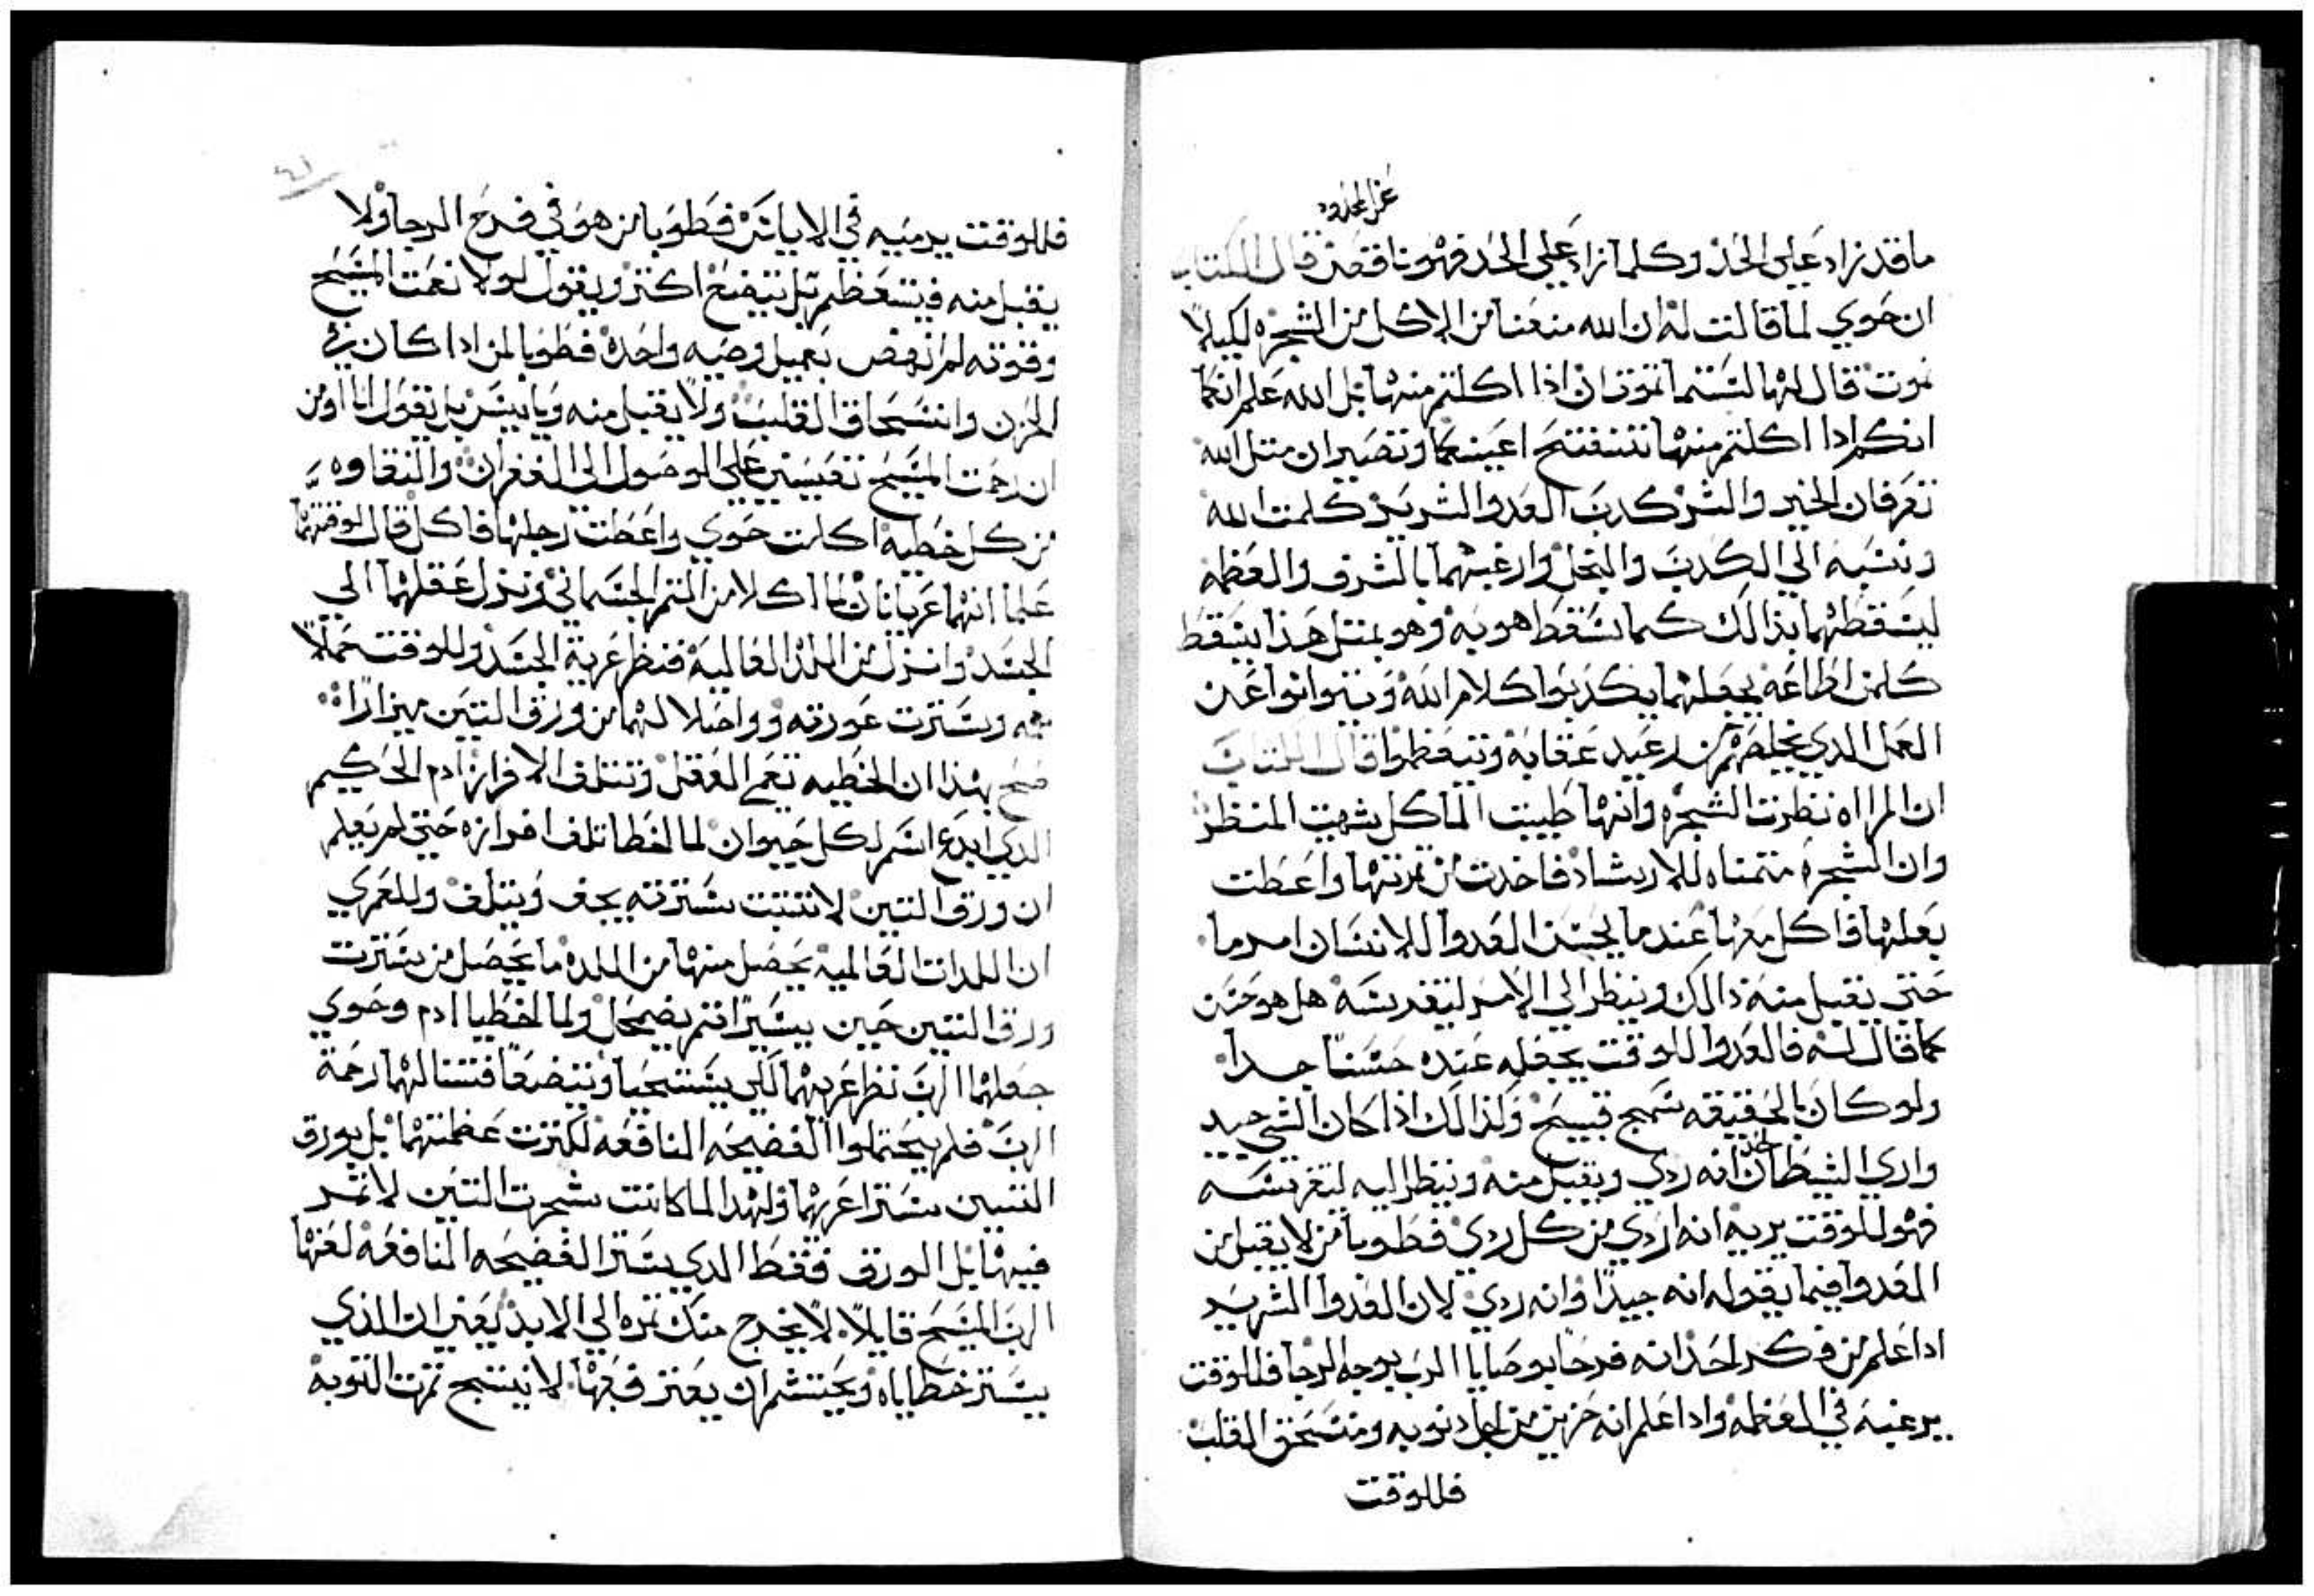 عن المحدود
ما قد زاد علي الحد وكلما زاد علي الحد فهو ناقص قال الكتاب
ان حوي لما قالت له ان الله منعنا من الاكل من الشجره لكيلا
نموت قال لها لستما تموتان اذا اكلتم منها بل الله علم انكما
انكم ادا اكلتم منها تتفتح اعينكما وتصيران متل الله
تعرفان الخير والشر كدب العدو الشرير كلمت الله
ونسبه الي الكدب والبخل وارغبهما بالشرف والعظمه
ليسقطهما بذالك كما سقط هو به وهو بمتل هذا يسقط
كلمن اطاعه يجعلهما يكدبوا كلام الله ويتوانوا عن
العمل الدي يخلصهم من رعيد عقابه ويتعظموا قال الكتاب
ان المراه نظرت الشجره وانها طيبت الماكل شهيت المنظر
وان الشجره متمناه للارشاد فاخدت من تمرتها واعطت
بعلها فاكل معها عندما يحسن العدوا للانسان امر ما
حتي يقبل منه دالك وينظر الي الامر ليتفرسه هل هو حسن
كما قال له فالعدوا للوقت يجعله عنده حسنا جدا
ولو كان بالحقيقه سمج قبيح ولذالك اذا كان الشي جيد
واري الشيطان لاحد انه ردي ويقبل منه وينظر اليه ليتفرسه
فهو للوقت يريه انه اردي من كل ردي فطوبا من لا يقبل من
العدوا فيما يقوله انه جيدا وانه ردي لان العدوا الشرير
ادا علم من فكر احد انه فرحا بوصايا الرب بوجه الرجا فللوقت
يرغبه في العظمه وادا علم انه حزين من اجل دنوبه ومنسحق القلب
فللوقت
٤١
فللوقت يرميه في الاياس فطوبا من هو في فرح الرجا ولا
يقبل منه فيتعظم بل يتضع اكتر ويقول لولا نعمت المسيح
وقوته لم انهض بعمل وصيه واحده فطوبا لمن ادا كان في
الحزن وانسحاق القلب ولا يقبل منه ويايس بل يقول انا اومن
ان رحمت المسيح تعينني علي الوصول الي الغفران والنقاوه
من كل خطيه اكلت حوي واعطت رجلها فاكل قال لوقتهما
علما انهما عريانان لما اكلا من التمر الجسماني ونزل عقلهما الي
الجسد وانزل من اللذه العاليه فنظر عرية الجسد وللوقت عملا
سترت عورته وواصلا لهما من ورق التين ميزارا
بهذا ان الخطيه تعمي العقل وتتلف الافراز ادم الحكيم
الدي ابدع اسم لكل حيوان لما اخطا تلف افرازه حتي لم يعلم
ان ورق التين لا تتبت سترته يجف ويتلف وللعمري
ان اللدات العالميه يحصل منها من اللده ما يحصل من سترت
ورق التين حين يسيرا تم يضمحل ولما اخطيا ادم وحوي
جعلهما الرب نظر عريهما لكي يستحيا ويتضعا فتنالهما رحمة
الرب فلم يحتملوا الفضيحه النافعه لكترت عظمتهما بل بورق
التين سترا عريهما ولهدا لما كانت شجرت التين لا تمر
فيها بل الورق فقط الدي ستر الفضيحه النافعه لعنها
الرب المسيح قايلا لا يخرج منك تمره الي الابد يعني ان الذي
يستر خطاياه ويحتشم ان يعترف بها لا ينتج تمرت التوبه